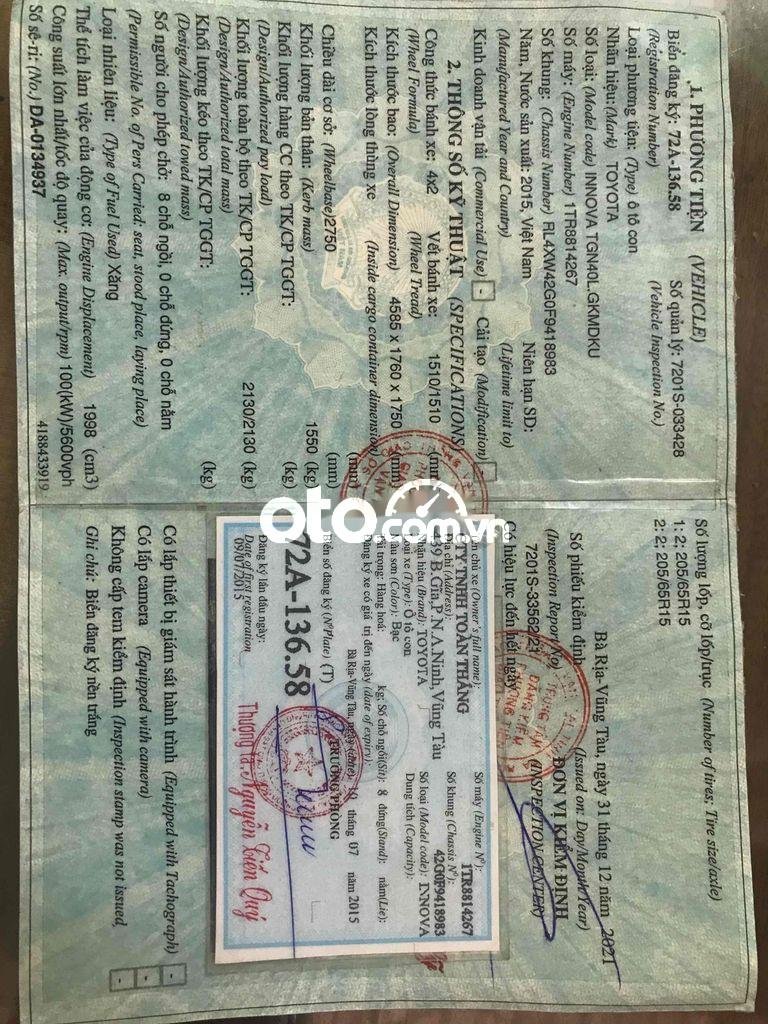 1. PHƯƠNG TIỆN (VEHICLE)
Biển đăng ký: 72A-136.58 Số quản lý: 7201S-033428
(Registration Number) (Vehicle Inspection No.)
Loại phương tiện: (Type) ô tô con
Nhãn hiệu:(Mark) TOYOTA
Số loại: (Model code) INNOVA TGN40L.GKMDKU
Số máy: (Engine Number) 1TR8814267
Số khung: (Chassis Number) RL4XW42G0F9418983
Năm, Nước sản xuất: 2015, Việt Nam Niên hạn SD:
(Manufactured Year and Country) (Lifetime limit to)
Kinh doanh vận tải (Commercial Use) - Cải tạo (Modification)
2. THÔNG SỐ KỸ THUẬT (SPECIFICATIONS)
Công thức bánh xe: 4x2 Vết bánh xe: 1510/1510 (mm)
(Wheel Formula) (Wheel Tread)
Kích thước bao: (Overall Dimension) 4585 x 1760 x 1750 (mm)
Kích thước lòng thùng xe (Inside cargo container dimension)
(mm)
Chiều dài cơ sở: (Wheelbase)2750 (mm)
Khối lượng bản thân: (Kerb mass) 1550 (kg)
Khối lượng hàng CC theo TK/CP TGGT: (kg)
(Design/Authorized pay load)
Khối lượng toàn bộ theo TK/CP TGGT: 2130/2130 (kg)
(Design/Authorized total mass)
Khối lượng kéo theo TK/CP TGGT: (kg)
(Design/Authorized towed mass)
Số người cho phép chở: 8 chỗ ngồi, 0 chỗ đứng, 0 chỗ nằm
(Permissible No. of Pers Carried: seat, stood place, laying place)
Loại nhiên liệu: (Type of Fuel Used) Xăng
Thể tích làm việc của động cơ: (Engine Displacement) 1998 (cm3)
Công suất lớn nhất/tốc độ quay: (Max. output/rpm) 100(kW)/5600vph
Số sê-ri: (No.) DA-0134937 4188433919
Số lượng lốp, cỡ lốp/trục (Number of tires; Tire size/axle)
1: 2; 205/65R15
2: 2; 205/65R15
Bà Rịa-Vũng Tàu, ngày 31 tháng 12 năm 2021
(Issued on: Day/Month/Year)
Số phiếu kiểm định ĐƠN VỊ KIỂM ĐỊNH
(Inspection Report No) (INSPECTION CENTER)
7201S-33562/21
Có hiệu lực đến hết ngày
TRUNG TÂM
ĐĂNG KIỂM
oto.com.vn
Tên chủ xe (Owner's full name): Số máy (Engine Nº):
CTY TNHH TOÀN THẮNG 1TR8814267
Địa chỉ (Address): Số khung (Chassis Nº):
439 B.Gĩa,P.N.A.Ninh,Vũng Tàu 42G0F9418983
Nhãn hiệu (Brand): TOYOTA Số loại (Model code): INNOVA
Loại xe (Type): Ô tô con Dung tích (Capacity):
Màu sơn (Color): Bạc
Tải trọng: Hàng hoá: kg; Số chỗ ngồi(Sit): 8 đứng(Stand): nằm(Lie):
Đăng ký xe có giá trị đến ngày (date of expiry):
Bà Rịa-Vũng Tàu, ngày (date) 10 tháng 07 năm 2015
Biển số đăng ký (NºPlate) (T) TRƯỞNG PHÒNG
72A-136.58
Đăng ký lần đầu ngày:
Date of first registration
09/07/2015
Thượng tá. Nguyễn Tiến Quý
Có lắp thiết bị giám sát hành trình (Equipped with Tachograph) -
Có lắp camera (Equipped with camera) -
Không cấp tem kiểm định (Inspection stamp was not issued -
Ghi chú: Biển đăng ký nền trắng